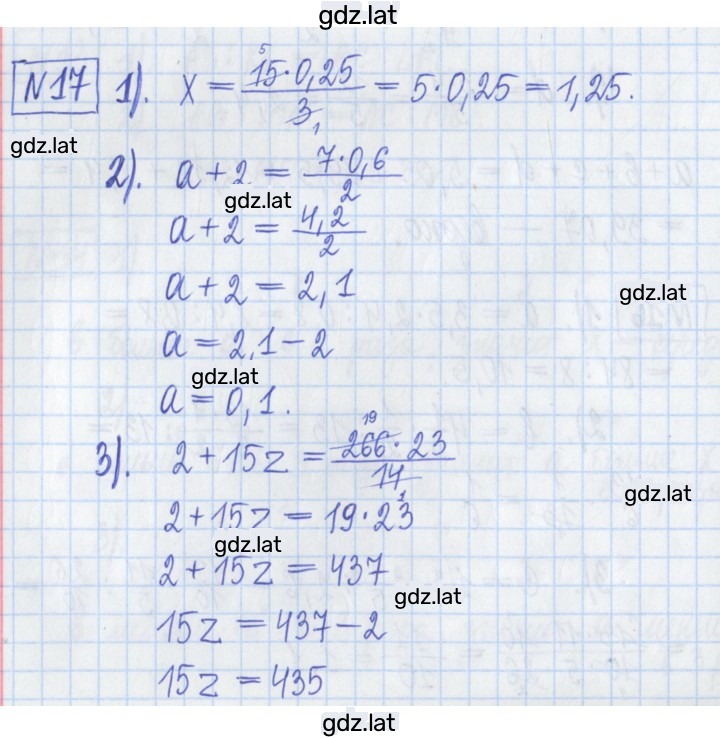 gdz.lat
N17 1). x = 15·0,25 / 3 = 5·0,25 = 1,25.
gdz.lat
2). a + 2 = 7·0,6 / 2
gdz.lat
a + 2 = 4,2 / 2
a + 2 = 2,1
gdz.lat
a = 2,1 – 2
gdz.lat
a = 0,1.
3). 2 + 15z = 266·23 / 14
gdz.lat
2 + 15z = 19·23
gdz.lat
2 + 15z = 437
gdz.lat
15z = 437 – 2
15z = 435
gdz.lat